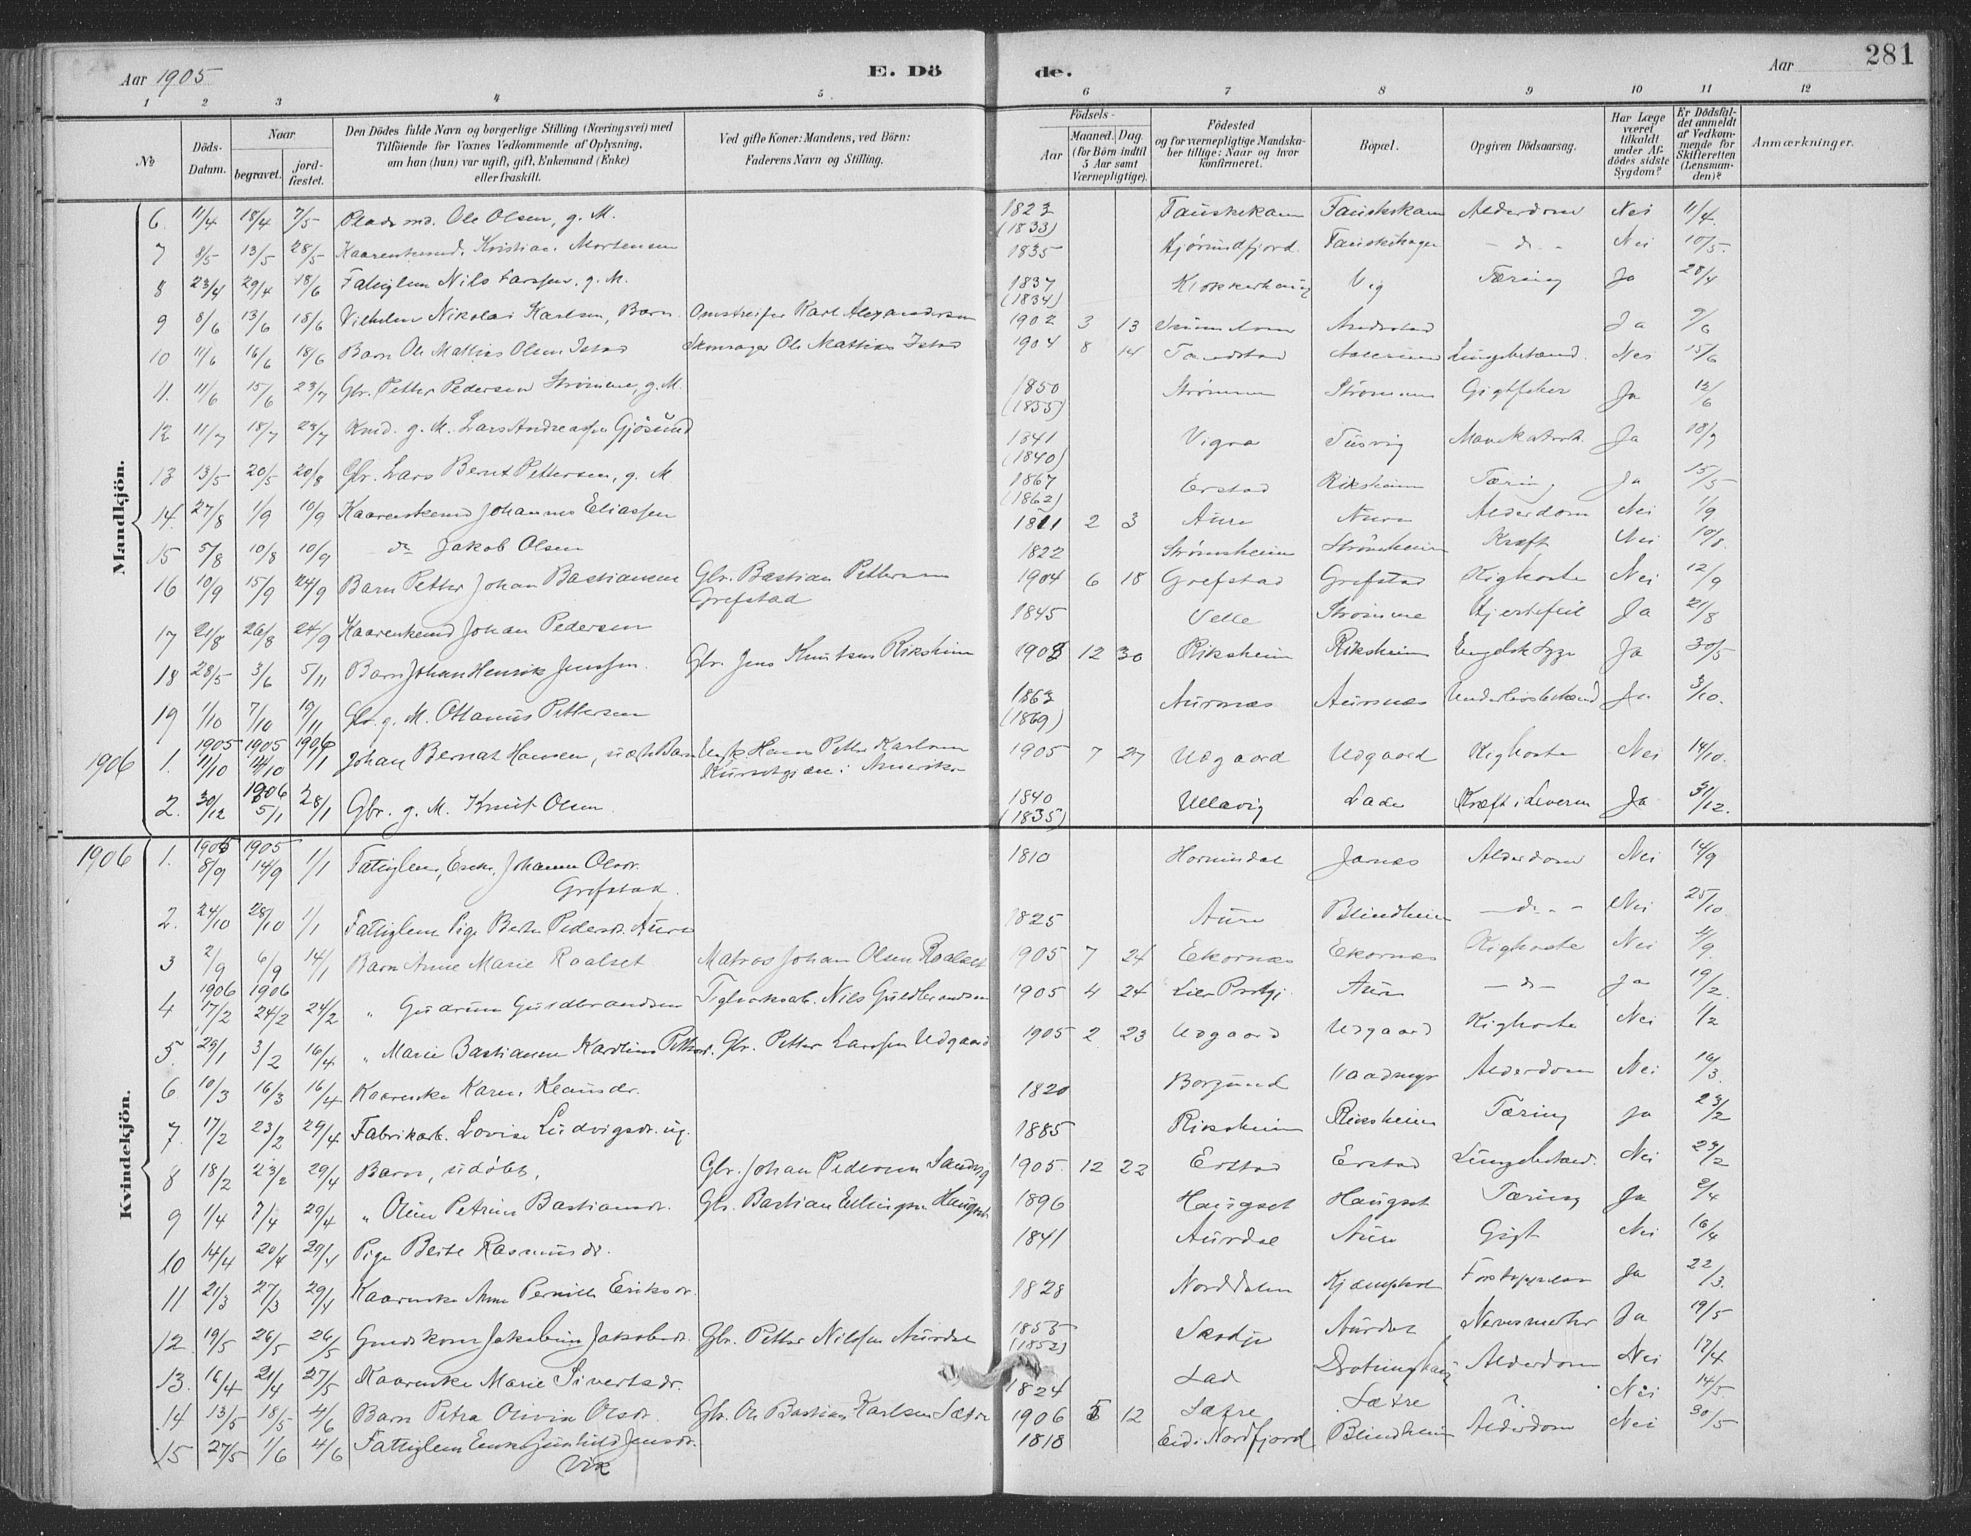 Aar 1905 E. Dö de. Aar 281
1 2 3 4 5 6 7 8 9 10 11 12
No Döds-Datum. Naar begravet. jord-fæstet. Den Dödes fulde Navn og borgerlige Stilling (Næringsvei) med Tilföiende for Voxnes Vedkommende af Oplysning, om han (hun) var ugift, gift, Enkemand (Enke) eller fraskilt. Ved gifte Koner: Mandens, ved Börn: Faderens Navn og Stilling. Födsels- Aar Maaned. Dag. (for Börn indtil 5 Aar samt Værnepligtige). Födested og for værnepligtige Mandskaber tillige: Naar og hvor konfirmeret. Bopæl. Opgiven Dödsaarsag. Har Læge været tilkaldt under Afdödes sidste Sygdom? Er Dödsfaldet anmeldt af Vedkommende for Skifteretten (Lensmanden)? Anmærkninger.
Mandkjön.
6 11/4 18/4 7/5 Plads md. Ole Olsen, g. M. 1823 (1833) Alderdom Nei 11/4
7 13/5 28/5 Kaarenkemd. Kristian Mortensen 1835 Hjörundfjord Nei 10/5
8 23/4 29/4 18/6 Fattiglem Nils Larssen, g. M. 1837 (1834) Vig Tæring Ja 28/4
9 8/6 13/6 18/6 Vilhelm Nikolai Karlsen, Barn Omstreifer Karl Alexandersen 1902 3 13 Ja 9/6
10 11/6 16/6 18/6 Barn Ole Mathias Olsen Istad Ole Mathias Istad 1904 8 14 Lungebetænd. Nei 15/6
11. 11/6 15/6 23/7 Gbr. Petter Pedersen Strömme, g. M. 1850 (1855) Strömme Strömme Gigtfeber Ja 12/6
12 11/7 18/7 23/7 Kmd. g. M. Lars Andreassen Gjösund 1841 (1840) Vigra Tusvig Ja 18/7
13 13/5 20/5 20/8 Gbr. Lars Bernt Pettersen, g. M. 1867 (1862) Erstad Riksheim Tæring Ja 15/5
14. 27/8 1/9 10/9 Kaarenkemd Johannes Eliassen 1811 2 3 Aure Aure Alderdom Nei 1/9
15 5/8 10/8 10/9 do Jakob Olsen 1822 Strömsheim Strömsheim Kræft Nei 10/8
16 10/9 15/9 24/9 Barn Petter Johan Bastiansen Gbr. Bastian Pettersen Grefstad 1904 6 18 Grefstad Grefstad Kighoste Nei 12/9
17 21/8 26/8 24/9 Kaarenkemd Johan Pedersen 1845 Velle Strömme Hjertefeil Ja 21/8
18 28/5 3/6 5/11 Barn Johan Henrik Jenssen. Gbr. Jens Knutsen Riksheim 1903 12 30 Riksheim Riksheim Engelsk Syge Ja 30/5
19 1/10 7/10 19/11 Gbr. g. M. Ottanius Pettersen 1863 (1869) Aursnæs Aursnæs Underlivsbetænd Ja 3/10.
1906 1. 1905 11/10 1905 14/10 1906 1/1 Johan Bernat Hansen, uægte Barn Ungk. Hans Petter Karlsen Amerika 1905 7 27 Udgaard Udgaard Kighoste Nei 14/10.
2. 30/12 1906 5/1 28/1 Gbr. g. M. Knut Olsen. 1840 (1835) Ullavig Lade Kræft i Leveren Ja 31/12.
Kvindekjön.
1906 1. 1905 8/9 1905 14/9 1/1 Fattiglem, Enke, Johanne Olsdr. Grefstad. 1810 Hornindal Jarnes Alderdom Nei 14/9
2. 24/10 28/10 1/1 Fattiglem Pige Berte Pedersdr. Aure 1825 Aure Blindheim do Nei 25/10.
3 2/9 6/9 14/1 Barn Anne Marie Roalset Matros Johan Olsen Roalset 1905 7 24 Ekornæs Ekornæs Kighoste Nei 4/9.
4 1906 17/2 1906 24/2 24/2 " Gudrun Guldbrandsen Teglverksarb. Nils Guldbrandsen 1905 4 24 Lier Prstgj. Aure do Ja 19/2.
5. 29/1 3/2 16/4 " Marie Bastianne Karoline Pettersdr. Gbr. Petter Larssen Udgaard 1905 2 23 Udgaard Udgaard Kighoste Nei 1/2
6 10/3 16/3 16/4 Kaarenke Karen Klausdr. 1820 Borgund Alderdom Nei 16/3.
7. 17/2 23/2 29/4 Fabrikarb. Lovise Ludvigsdr. ug. 1885 Riksheim Riksheim Tæring Ja 23/2
8 18/2 23/2 29/4 Barn, udöbt, Gbr. Johan Pedersen 1905. 12 22 Erstad Erstad Lungebetænd. Nei 24/2
9 1/4 7/4 29/4 " Oline Petrine Bastiansdr. Gbr. Bastian Ellingsen Haugset 1896 Haugset Haugset Tæring Ja 2/4
10 14/4 20/4 29/4 Pige Berte Rasmusdr. 1841 Aurdal Aure Gigt Nei 16/4
11 21/3 27/3 29/4 Kaarenke Anne Pernille Eriksdr. 1828 Norddalen Forstoppelse Ja 22/3.
12. 19/5 26/5 26/5 Gmdskone Jakobine Jakobsdr. Gbr. Petter Nilssen Aurdal 1855 (1852) Skodje Aurdal Ja 19/5
13. 16/4 21/4 27/5 Kaarenke Marie Sivertsdr. 1824 Lad Alderdom Nei 17/4
14 13/5 18/5 4/6 Barn Petra Olivie Olsdr. Gbr. Ole Bastian Karlsen Sætre 1906 5 12 Sætre Sætre ? Nei 14/5
15 27/5 1/6 4/6 Fattiglem Enke Gunhild Jensdr. Vik 1818 Eid i Nordfjord Blindheim Alderdom Nei 30/5